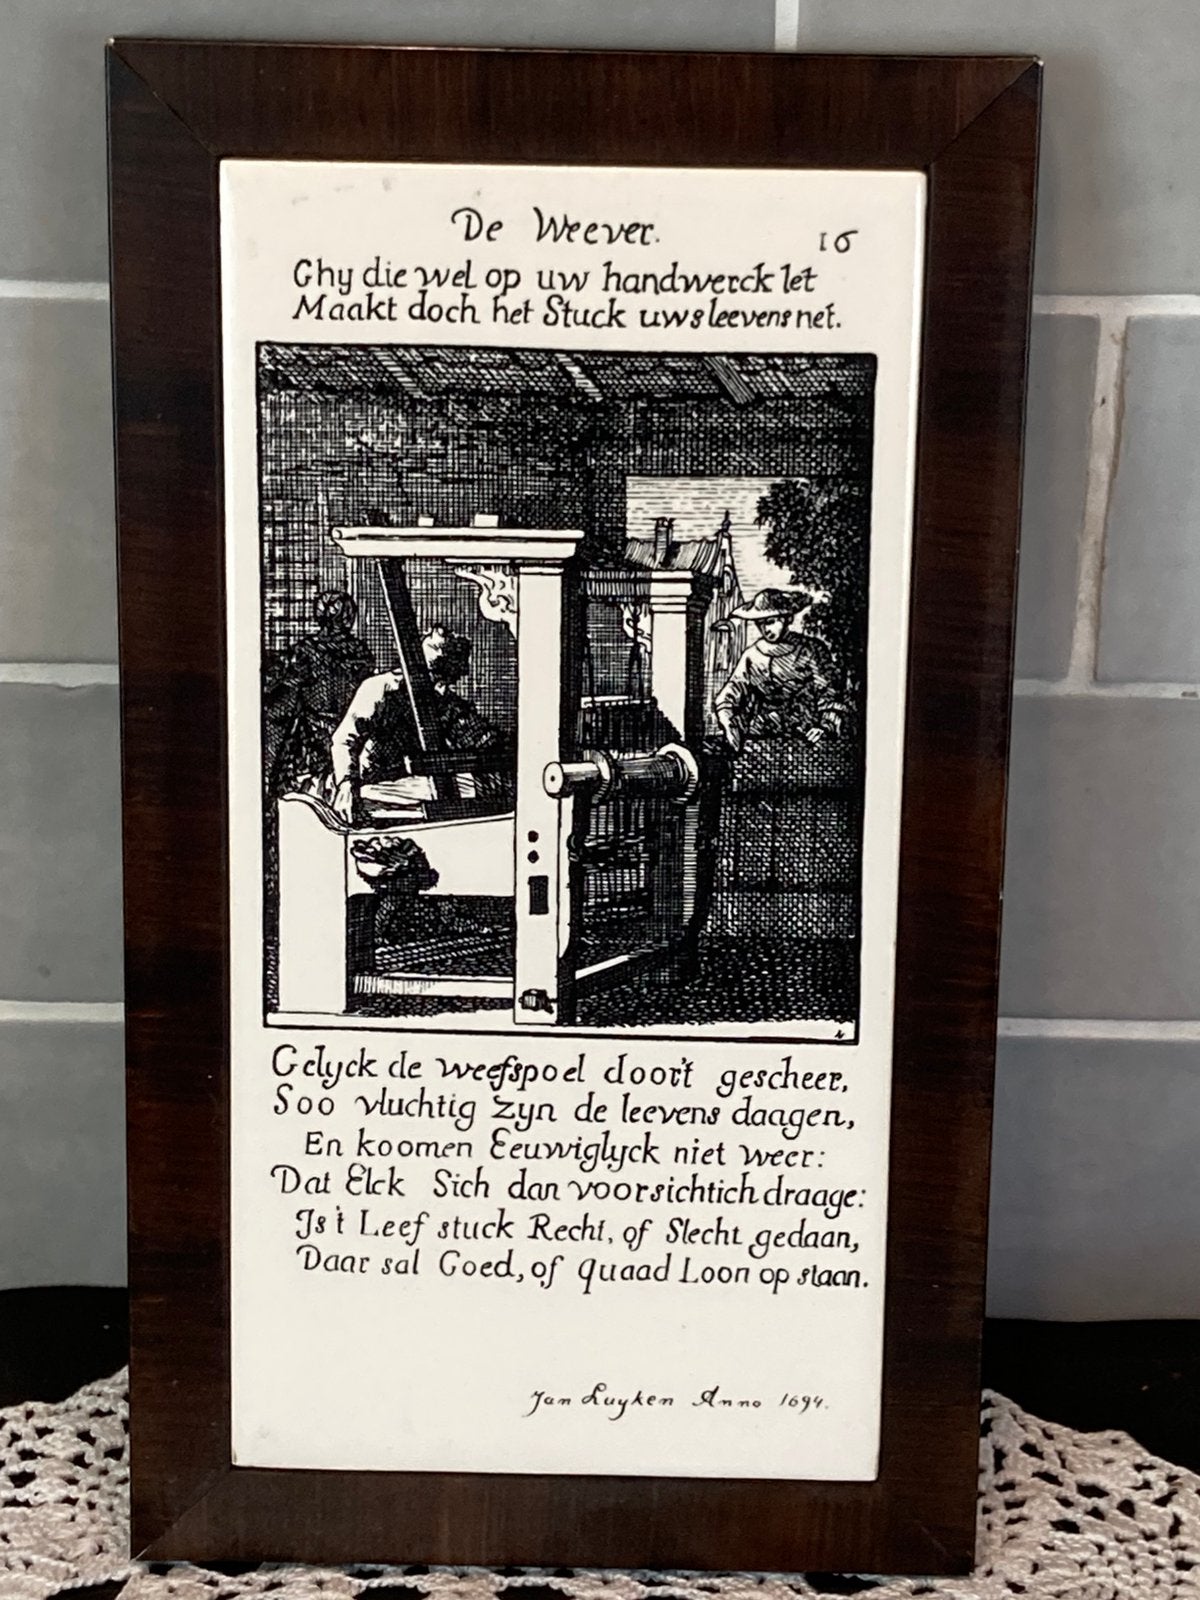 De Weever.
16
Ghy die wel op uw handwerck let
Maakt doch het Stuck uws leevens net.
Gelyck de weefspoel door't gescheer,
Soo vluchtig zyn de leevens daagen,
En koomen Eeuwiglyck niet weer:
Dat Elck Sich dan voorsichtich draage:
Js't Leef stuck Recht, of Slecht gedaan,
Daar sal Goed, of quaad Loon op staan.
Jan Luyken Anno 1694.